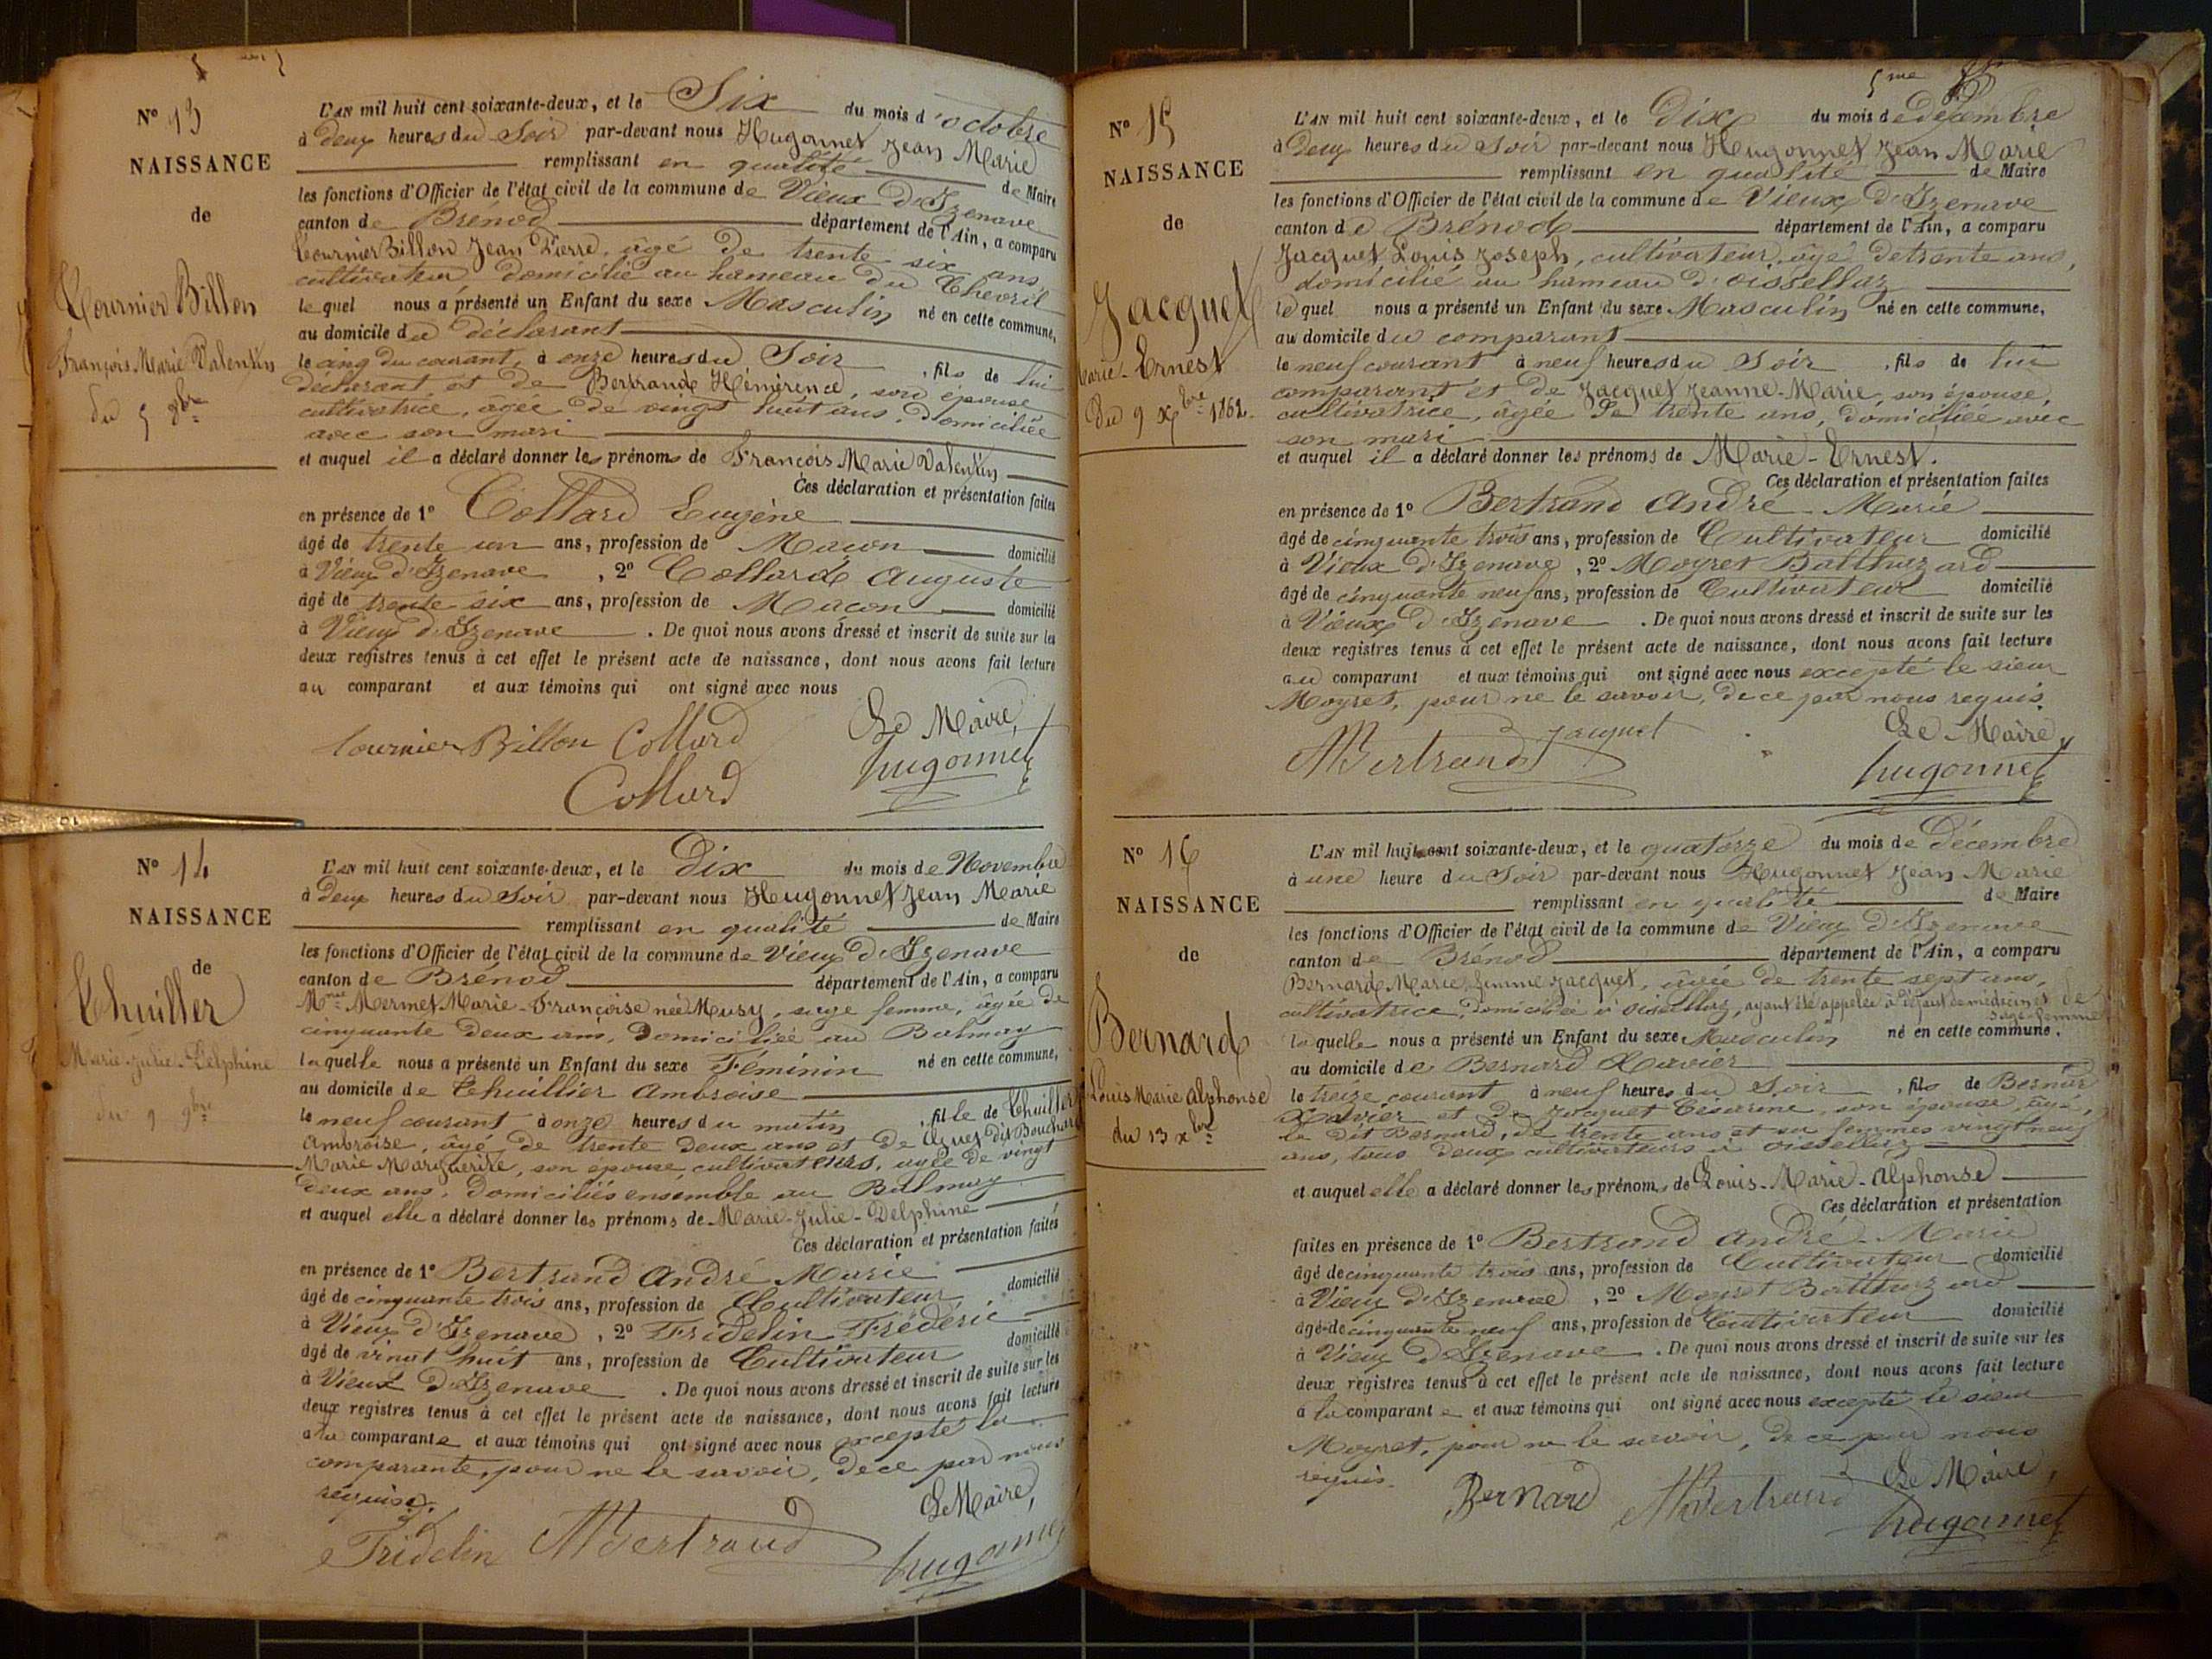 N° 13
NAISSANCE
de
Tournier Billon
François Marie Valentin
du 5 8bre
L'AN mil huit cent soixante-deux, et le Six du mois d'octobre
à deux heures du Soir par-devant nous Hugonnet Jean Marie
remplissant en qualité de Maire
les fonctions d'Officier de l'état civil de la commune de Vieux d'Izenave
canton de Brénod département de l'Ain, a comparu
Tournier Billon Jean Pierre, âgé de trente six ans,
cultivateur, domicilié au hameau du Chevril
lequel nous a présenté un Enfant du sexe Masculin né en cette commune,
au domicile du déclarant
le cinq du courant, à onze heures du Soir, fils de lui
déclarant et de Bertrand Hémérence, son épouse
cultivatrice, âgée de vingt huit ans, domiciliée
avec son mari
et auquel il a déclaré donner les prénoms de François Marie Valentin
Ces déclaration et présentation faites
en présence de 1° Collard Eugène
âgé de trente un ans, profession de Maçon domicilié
à Vieux d'Izenave, 2° Collard Auguste
âgé de trente six ans, profession de Maçon domicilié
à Vieux d'Izenave. De quoi nous avons dressé et inscrit de suite sur les
deux registres tenus à cet effet le présent acte de naissance, dont nous avons fait lecture
au comparant et aux témoins qui ont signé avec nous
Le Maire,
Tournier Billon Collard
hugonnet
Collard
N° 14
NAISSANCE
de
Thuiller
Marie-Julie-Delphine
du 9 9bre
L'AN mil huit cent soixante-deux, et le Dix du mois de Novembre
à deux heures du Soir par-devant nous Hugonnet Jean Marie
remplissant en qualité de Maire
les fonctions d'Officier de l'état civil de la commune de Vieux d'Izenave
canton de Brénod département de l'Ain, a comparu
Mme Mermet Marie-Françoise née Musy, sage femme, âgée de
cinquante deux ans, domiciliée au Balmay
laquelle nous a présenté un Enfant du sexe Féminin né en cette commune,
au domicile de Thuillier Ambroise
le neuf courant à onze heures du matin, fille de Thuillier
Ambroise, âgé de trente deux ans et de Aguet dit Bouchard
Marie Marguerite, son épouse, cultivateurs, agée de vingt
deux ans, domiciliés ensemble au Balmay
et auquel elle a déclaré donner les prénoms de Marie-Julie-Delphine
Ces déclaration et présentation faites
en présence de 1° Bertrand André Marie
âgé de cinquante trois ans, profession de Cultivateur domicilié
à Vieux d'Izenave, 2° Fridelin Frédéric
âgé de vingt huit ans, profession de Cultivateur domicilié
à Vieux d'Izenave. De quoi nous avons dressé et inscrit de suite sur les
deux registres tenus à cet effet le présent acte de naissance, dont nous avons fait lecture
à la comparante et aux témoins qui ont signé avec nous excepté la
comparante, pour ne le savoir, de ce par nous
requise.
Le Maire,
Fridelin ABertrand hugonnet
5me
N° 15
NAISSANCE
de
Jacquet
Marie-Ernest
Du 9 Xbre 1862.
L'AN mil huit cent soixante-deux, et le Dix du mois de décembre
à Deux heures du Soir par-devant nous Hugonnet Jean Marie
remplissant en qualité de Maire
les fonctions d'Officier de l'état civil de la commune de Vieux d'Izenave
canton de Brénod département de l'Ain, a comparu
Jacquet Louis Joseph, cultivateur, âgé de trente ans,
domicilié au hameau d'oissellaz
lequel nous a présenté un Enfant du sexe Masculin né en cette commune,
au domicile du comparant
le neuf courant à neuf heures du Soir, fils de lui
comparant et de Jacquet Jeanne-Marie, son épouse,
cultivatrice, âgée de trente ans, domiciliée avec
son mari
et auquel il a déclaré donner les prénoms de Marie-Ernest.
Ces déclaration et présentation faites
en présence de 1° Bertrand André Marie
âgé de cinquante trois ans, profession de Cultivateur domicilié
à Vieux d'Izenave, 2° Moyret Balthazard
âgé de cinquante neuf ans, profession de Cultivateur domicilié
à Vieux d'Izenave. De quoi nous avons dressé et inscrit de suite sur les
deux registres tenus à cet effet le présent acte de naissance, dont nous avons fait lecture
au comparant et aux témoins qui ont signé avec nous excepté le sieur
Moyret, pour ne le savoir, de ce par nous requis.
Jacquet Le Maire,
ABertrand hugonnet
N° 16
NAISSANCE
de
Bernard
Louis Marie Alphonse
du 13 xbre
L'AN mil huit cent soixante-deux, et le quatorze du mois de Décembre
à une heure du Soir par-devant nous Hugonnet Jean Marie
remplissant en qualité de Maire
les fonctions d'Officier de l'état civil de la commune de Vieux d'Izenave
canton de Brénod département de l'Ain, a comparu
Bernard Marie, femme Jacquet, âgée de trente sept ans,
cultivatrice, domiciliée à oisellaz, ayant été appelée à défaut de médecin et de
sage-femme
laquelle nous a présenté un Enfant du sexe Masculin né en cette commune.
au domicile de Bernard Xavier
le treize courant à neuf heures du Soir, fils de Bernard
Xavier et de Jacquet Césarine, son épouse, âgé,
le dit Bernard, de trente ans et sa femme vingt neuf
ans, tous deux cultivateurs à oissellaz
et auquel elle a déclaré donner les prénoms de Louis-Marie-Alphonse
Ces déclaration et présentation
faites en présence de 1° Bertrand André-Marie
âgé de cinquante trois ans, profession de Cultivateur domicilié
à Vieux d'Izenave, 2° Moyret Balthazard
âgé de cinquante neuf ans, profession de Cultivateur domicilié
à Vieux d'Izenave. De quoi nous avons dressé et inscrit de suite sur les
deux registres tenus à cet effet le présent acte de naissance, dont nous avons fait lecture
à la comparante et aux témoins qui ont signé avec nous excepté le sieur
Moyret, pour ne le savoir, de ce par nous
requis. Le Maire,
Bernard ABertrand hugonnet